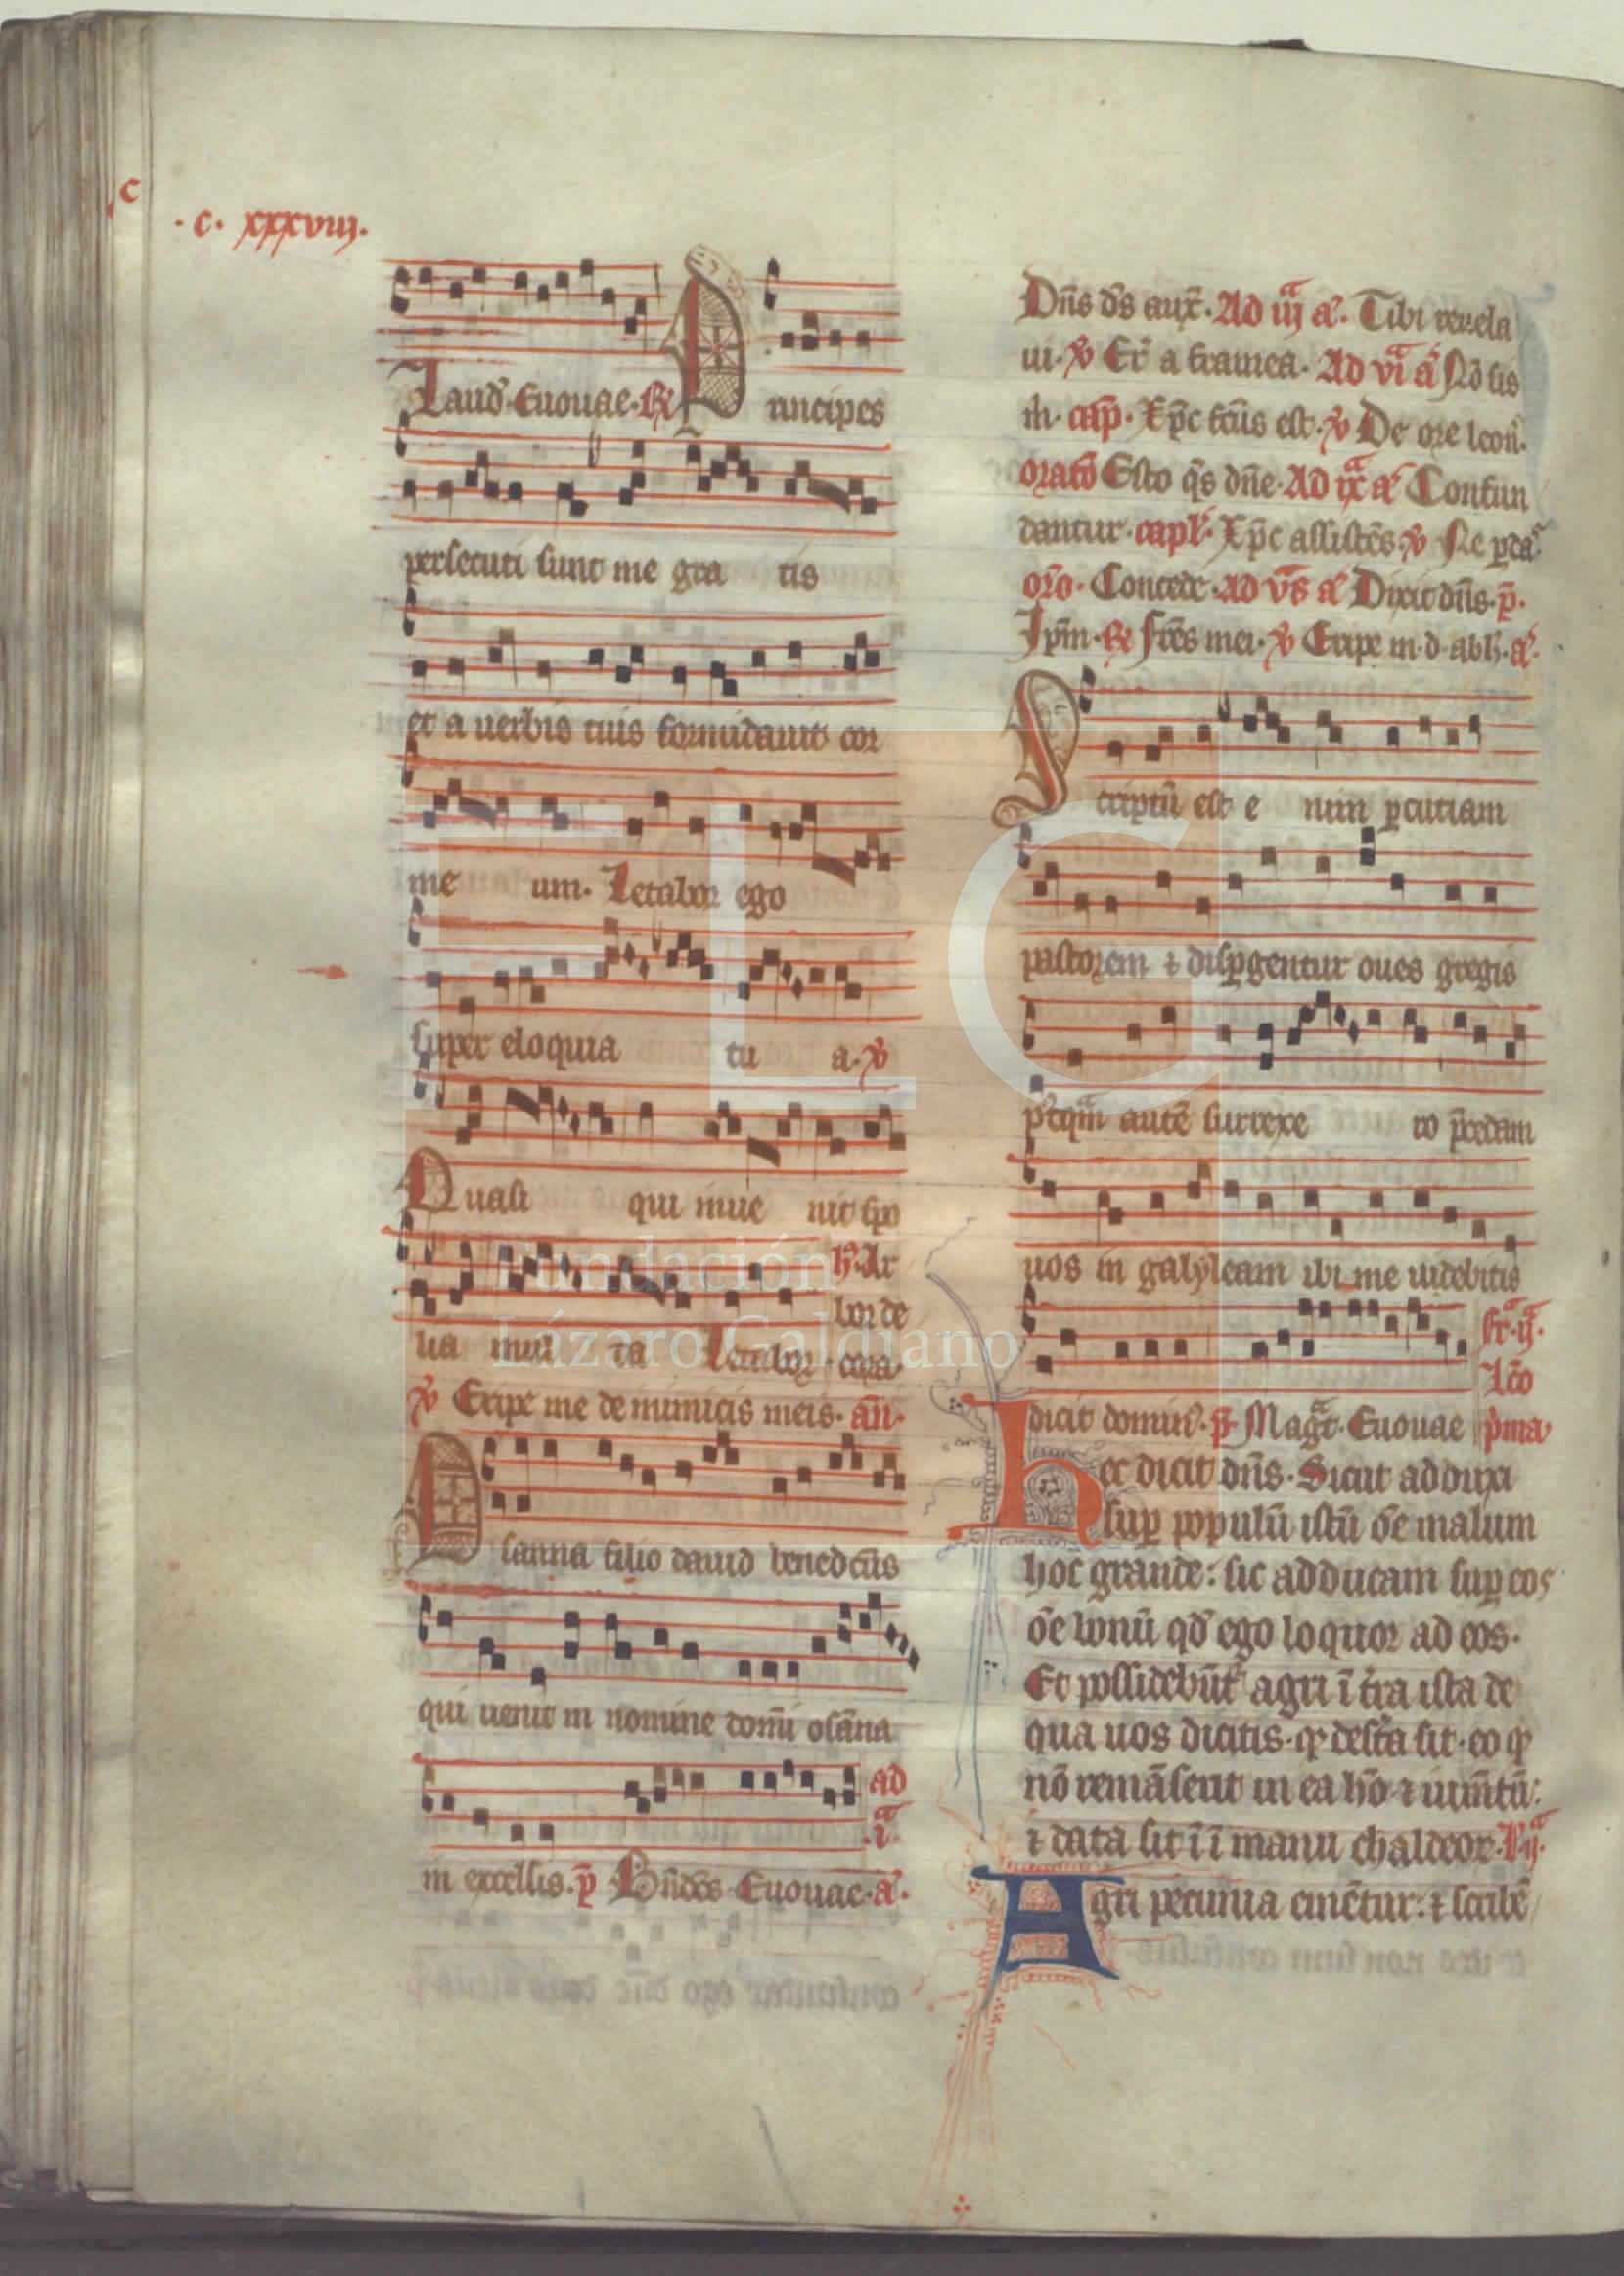 c
· c · xxxviij ·
Laud̄ · Euouae · R̷ Principes
persecuti sunt me gra tis
et a uerbis tuis formidauit cor
me um · Letabor ego
super eloquia tu a · v̷
Quasi qui inue nit spo
h̄ · Ar
bor de
lia mul ta Letabor · cora
v̷ Eripe me de inimicis meis · an̄ ·
Osanna filio dauid benedc̄us
qui uenit in nomine domī osāna
ad
·i·ª
in excelsis · p̄ Bn̄dc̄s · Euouae · a ·
Dn̄s ds̄ aux̄ · Ad iijª a · Tibi reuela
ui · v̷ Er̄ a framea · Ad viª a Nō sis
m · cap̄ · Xp̄c · est · v̷ De ore leon̄ ·
oratō Esto qs̄ dn̄e · Ad ixª a Confun
dantur · capl̄ · Xp̄c assistēs v̷ Ne ꝑda
or̄o · Concede · Ad vs̄ a Dixit dn̄s · p̄ ·
Ip̄m · R̷ fr̄es mei · v̷ Eripe m · d · ab h · a ·
Scriptū est e nim ꝑcutiam
pastorem ⁊ disꝑgentur oues gregis
ptqªm autē surrexe ro p̄cedam
uos in galyleam ibi me uidebitis
fr̄ · ijª ·
Lc̄o
dicit domin̄ · p̄ Magt̄ · Euouae p̄ma
Hec dicit dn̄s · Sicut adduxi
suꝑ populū istū ōe malum
hoc grande : sic adducam suꝑ eos
ōe bonū qd̄ ego loquor ad eos ·
Et possidebūt̄ agri ī tr̄a ista de
qua uos dicitis · ꝙ defta sit · eo ꝙ
nō remāserit in ea hō ⁊ iumtū :
⁊ data sit ī ī manu chaldeor · ijª ·
Agri pecunia emētur : ⁊ scribē
FLG
Fundación
Lázaro Galdiano